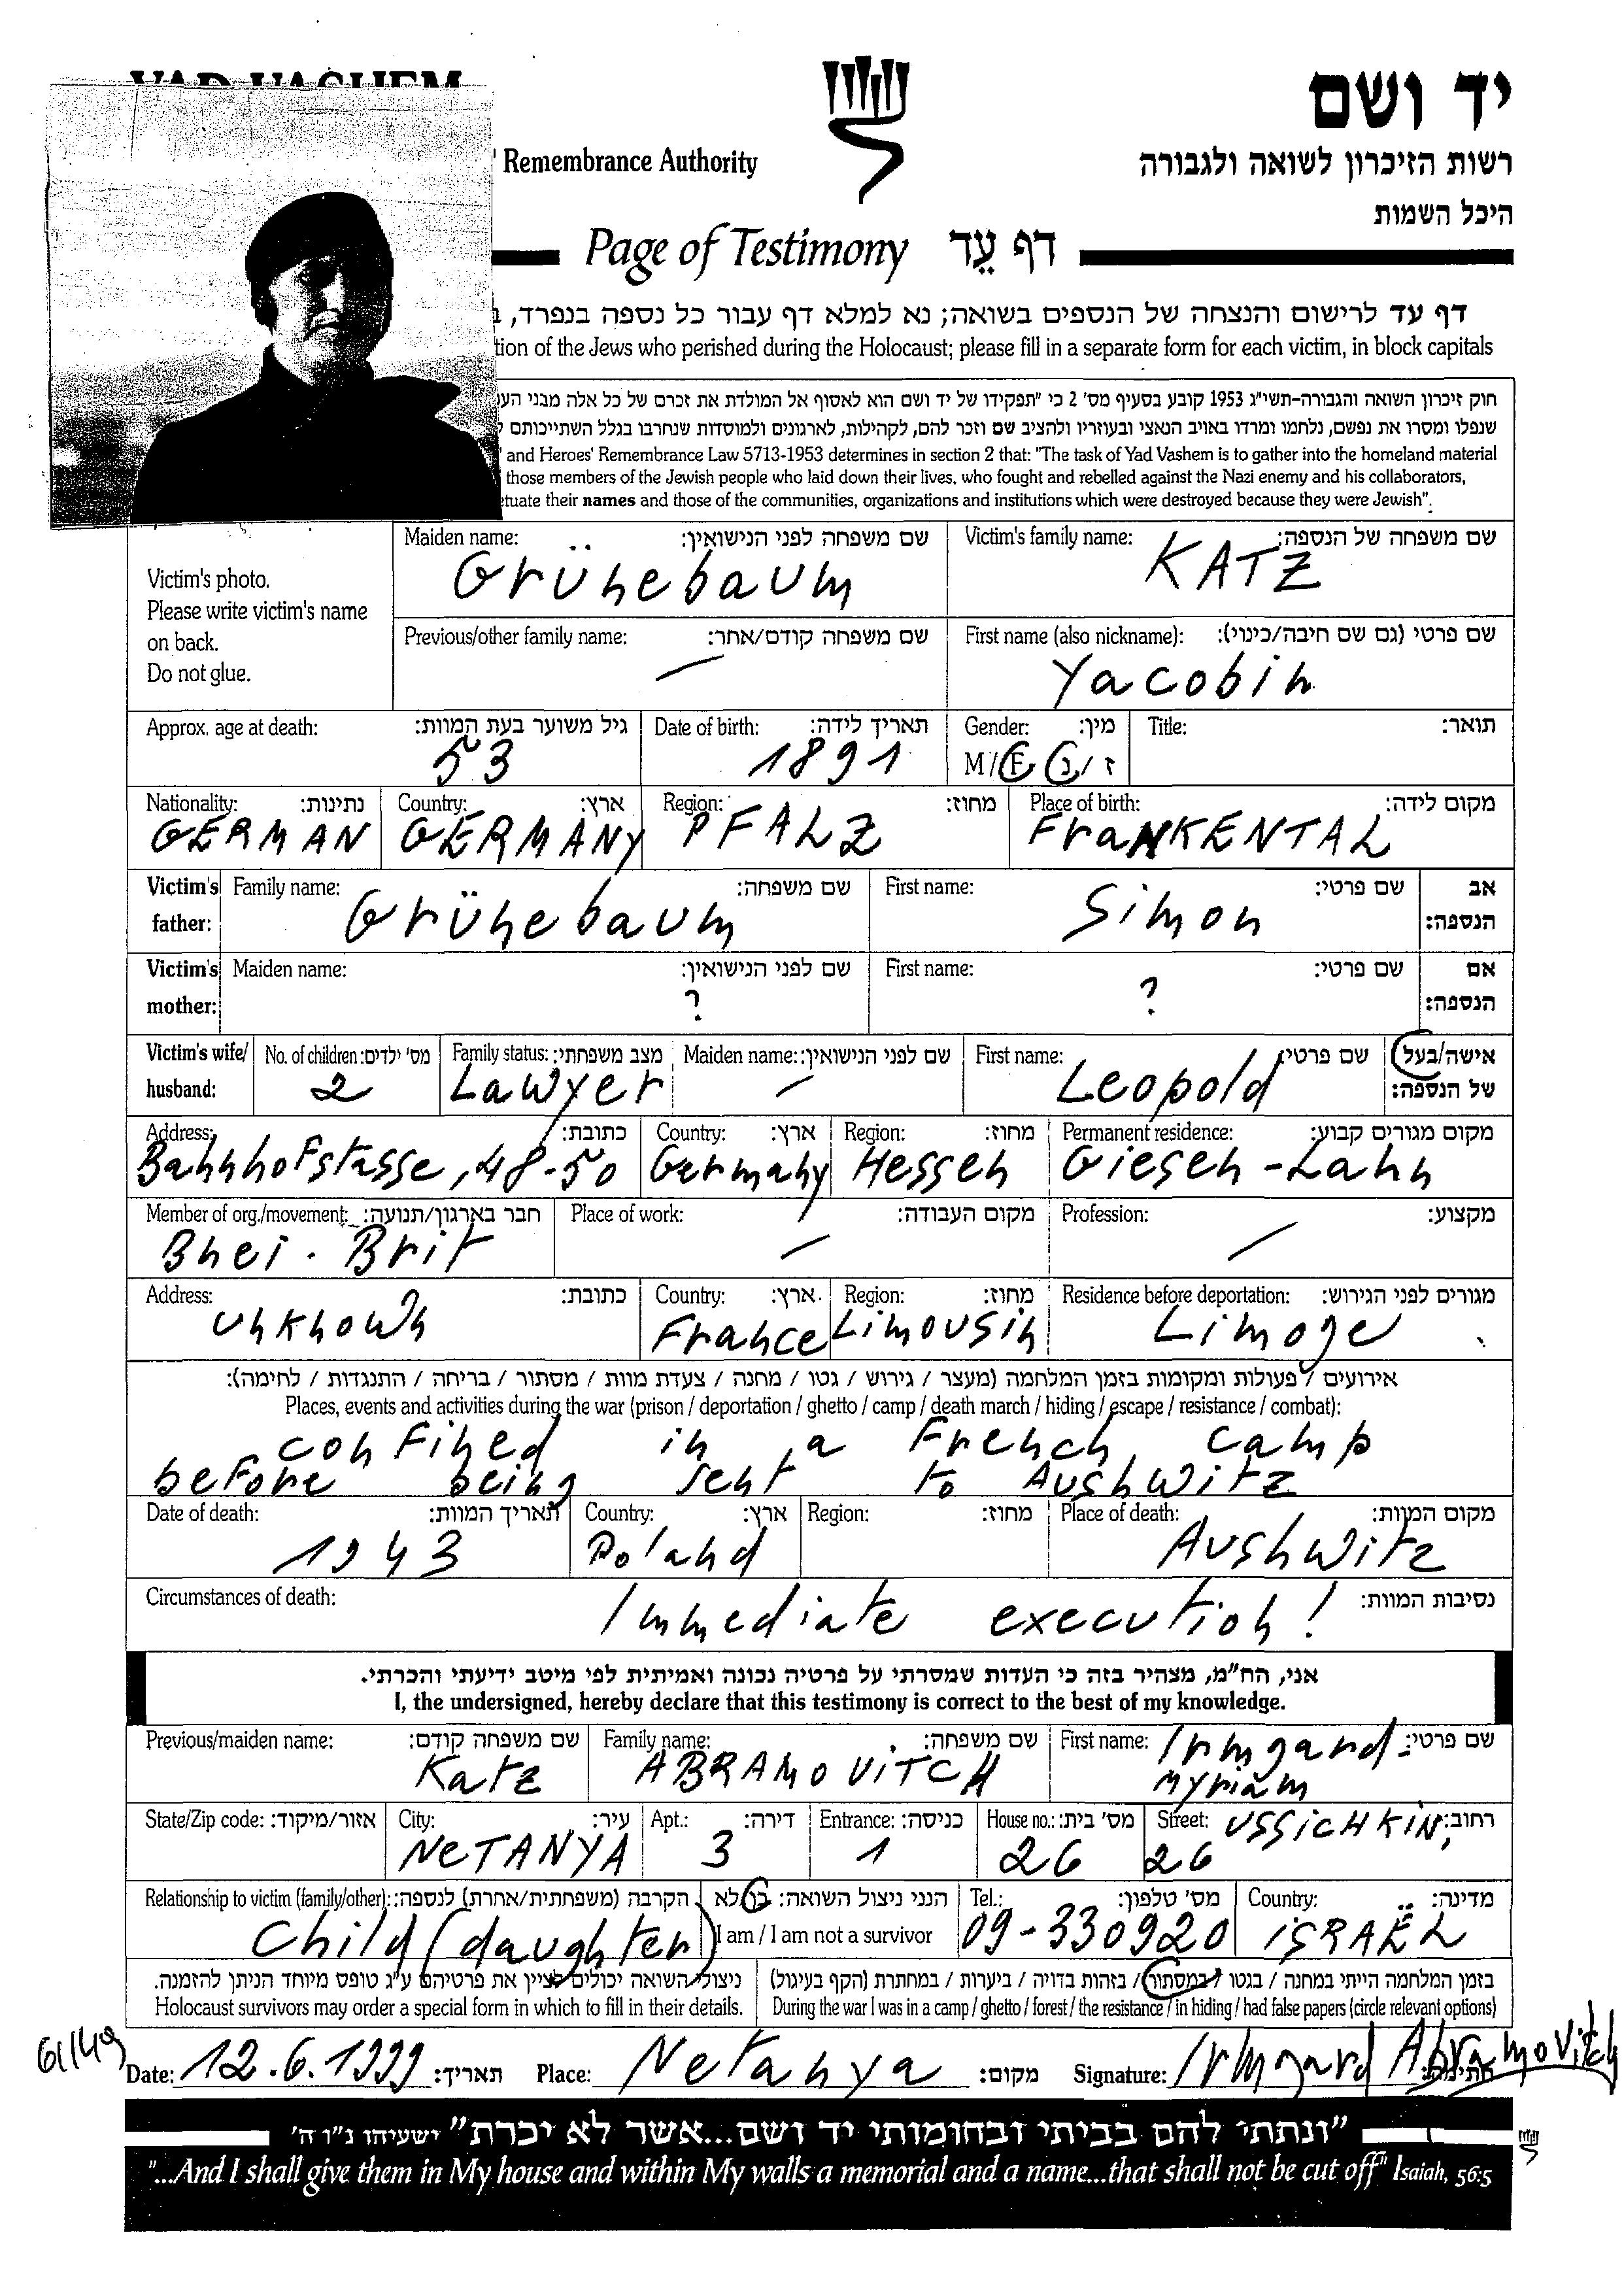 יד ושם
רשות הזיכרון לשואה ולגבורה
Remembrance Authority
היכל השמות
Page of Testimony דף עֵד
דף עד לרישום והנצחה של הנספים בשואה; נא למלא דף עבור כל נספה בנפרד,
tion of the Jews who perished during the Holocaust; please fill in a separate form for each victim, in block capitals
חוק זיכרון השואה והגבורה-תשי"ג 1953 קובע בסעיף מס' 2 כי "תפקידו של יד ושם הוא לאסוף אל המולדת את זכרם של כל אלה מבני
שנפלו ומסרו את נפשם, נלחמו ומרדו באויב הנאצי ובעוזריו ולהציב שם וזכר להם, לקהילות, לארגונים ולמוסדות שנחרבו בגלל השתייכותם
and Heroes' Remembrance Law 5713-1953 determines in section 2 that: "The task of Yad Vashem is to gather into the homeland material
those members of the Jewish people who laid down their lives, who fought and rebelled against the Nazi enemy and his collaborators,
tuate their names and those of the communities, organizations and institutions which were destroyed because they were Jewish".
Victim's photo.
Please write victim's name
on back.
Do not glue.
Maiden name: שם משפחה לפני הנישואין: Victim's family name: שם משפחה של הנספה:
Grünebaum KATZ
Previous/other family name: שם משפחה קודם/אחר: First name (also nickname): שם פרטי (גם שם חיבה/כינוי):
— Yacobin
Approx. age at death: גיל משוער בעת המוות: Date of birth: תאריך לידה: Gender: מין: Title: תואר:
53 1891 M/F ז/נ
Nationality: נתינות: Country: ארץ: Region: מחוז: Place of birth: מקום לידה:
GERMAN GERMANY PFALZ FraNKENTAL
Victim's father: Family name: שם משפחה: First name: שם פרטי: אב הנספה:
Grünebaum Simon
Victim's mother: Maiden name: שם לפני הנישואין: First name: שם פרטי: אם הנספה:
? ?
Victim's wife/ husband: No. of children: מס' ילדים: Family status: מצב משפחתי: Maiden name: שם לפני הנישואין: First name: שם פרטי: אישה/בעל של הנספה:
2 Lawyer — Leopold
Address: כתובת: Country: ארץ: Region: מחוז: Permanent residence: מקום מגורים קבוע:
Bahnhofstasse, 48-50 Germany Hessen Giesen-Lahn
Member of org./movement: חבר בארגון/תנועה: Place of work: מקום העבודה: Profession: מקצוע:
Bnei. Brit — —
Address: כתובת: Country: ארץ: Region: מחוז: Residence before deportation: מגורים לפני הגירוש:
unknown France Limousin Limoge
אירועים / פעולות ומקומות בזמן המלחמה (מעצר / גירוש / גטו / מחנה / צעדת מוות / מסתור / בריחה / התנגדות / לחימה):
Places, events and activities during the war (prison / deportation / ghetto / camp / death march / hiding / escape / resistance / combat):
confined in a French camp
before being sent to Aushwitz
Date of death: תאריך המוות: Country: ארץ: Region: מחוז: Place of death: מקום המוות:
1943 Poland Aushwitz
Circumstances of death: נסיבות המוות:
Immediate execution!
אני, הח"מ, מצהיר בזה כי העדות שמסרתי על פרטיה נכונה ואמיתית לפי מיטב ידיעתי והכרתי.
I, the undersigned, hereby declare that this testimony is correct to the best of my knowledge.
Previous/maiden name: שם משפחה קודם: Family name: שם משפחה: First name: שם פרטי:
Katz ABRAMOVITCH Irmgard-
Myriam
State/Zip code: אזור/מיקוד: City: עיר: Apt.: דירה: Entrance: כניסה: House no.: מס' בית: Street: רחוב:
NETANYA 3 1 26 USSICHKIN, 26
Relationship to victim (family/other): הקרבה (משפחתית/אחרת) לנספה: הנני ניצול השואה: כן/לא Tel.: מס' טלפון: Country: מדינה:
Child (daughter) I am / I am not a survivor 09-330920 iSRAËL
ניצולי השואה יכולים לציין את פרטיהם ע"ג טופס מיוחד הניתן להזמנה. בזמן המלחמה הייתי במחנה / בגטו / במסתור / בזהות בדויה / ביערות / במחתרת (הקף בעיגול)
Holocaust survivors may order a special form in which to fill in their details. During the war I was in a camp / ghetto / forest / the resistance / in hiding / had false papers (circle relevant options)
61/149
Date: 12.6.1999 תאריך: Place: Netanya מקום: Signature: Irmgard Abramovitch חתימה:
"ונתתי להם בביתי ובחומותי יד ושם...אשר לא יכרת" ישעיהו נ"ו ה'
"...And I shall give them in My house and within My walls a memorial and a name...that shall not be cut off" Isaiah, 56:5